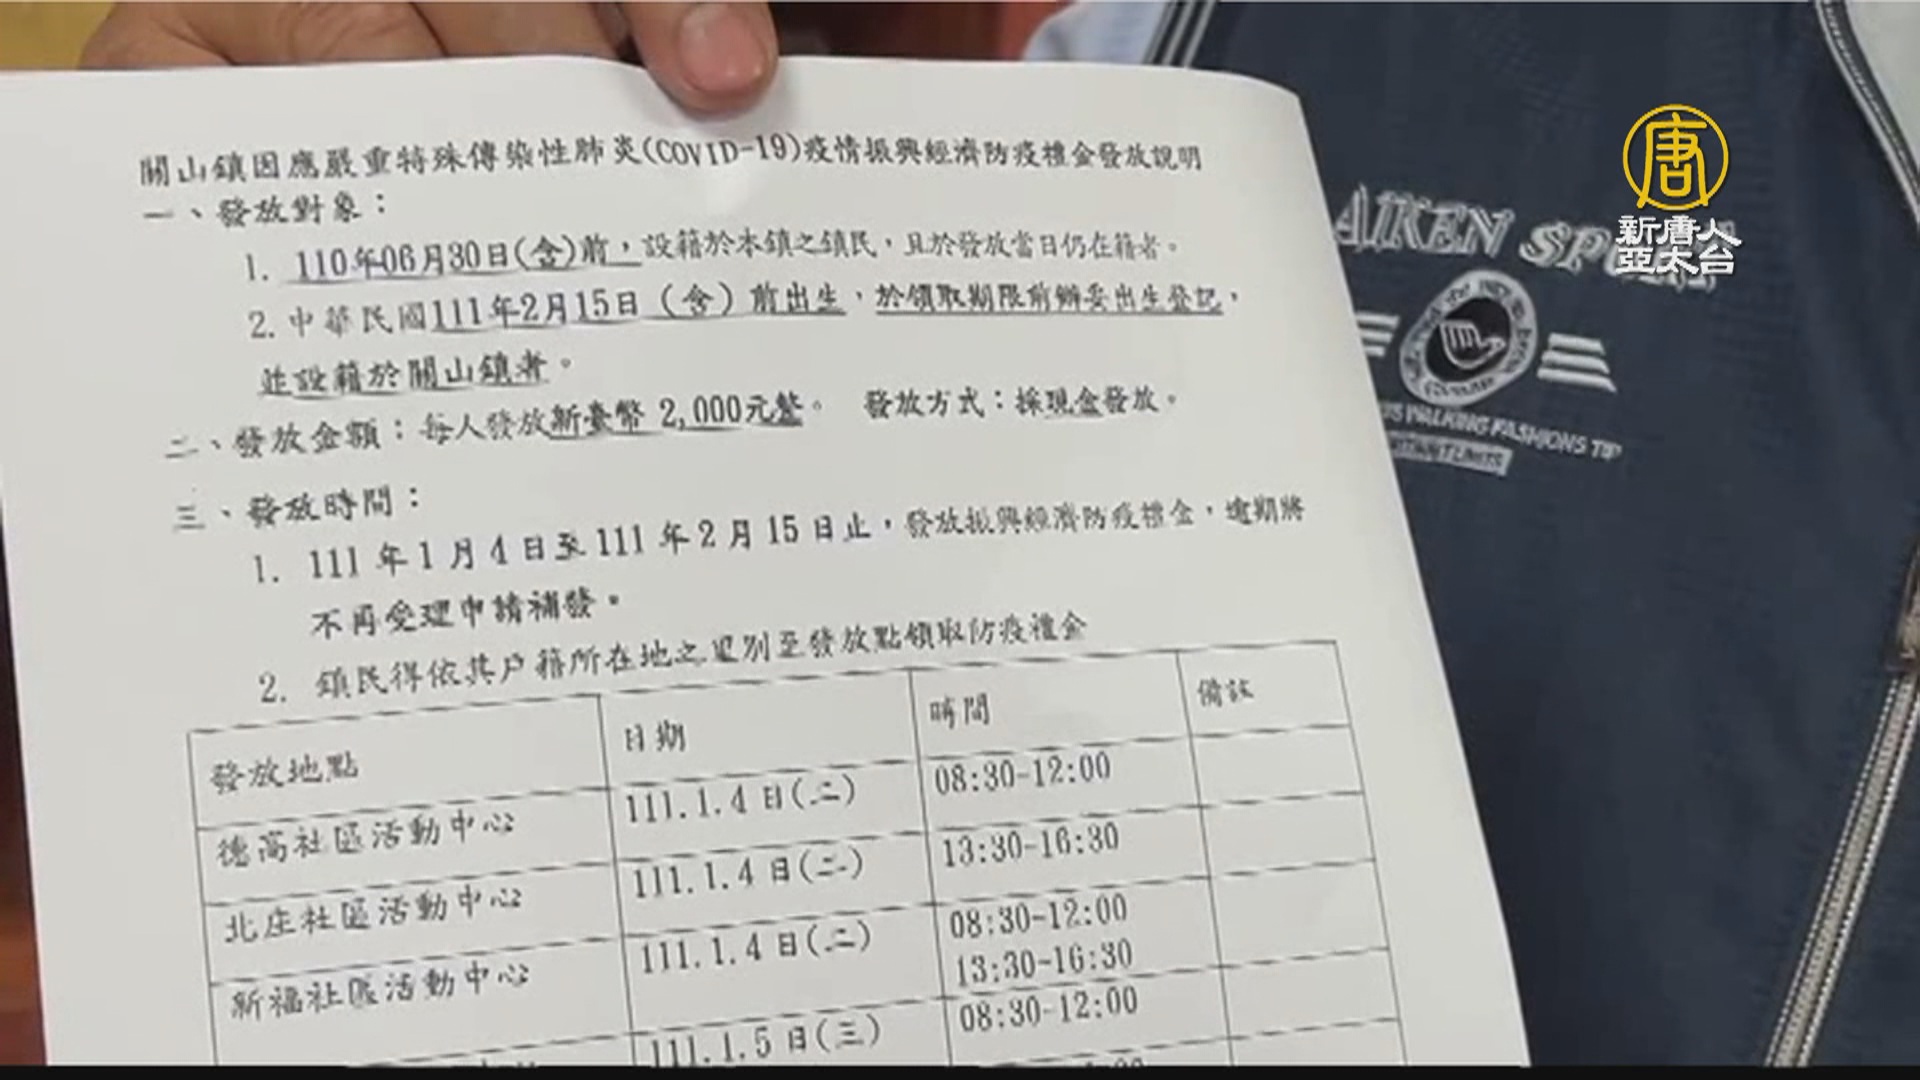 關山鎮因應嚴重特殊傳染性肺炎(COVID-19)疫情振興經濟防疫禮金發放說明
一、發放對象：
1. 110年06月30日(含)前，設籍於本鎮之鎮民，且於發放當日仍在籍者。
2. 中華民國111年2月15日（含）前出生，於領取期限前辦妥出生登記，
並設籍於關山鎮者。
二、發放金額：每人發放新臺幣 2,000元整。 發放方式：採現金發放。
三、發放時間：
1. 111 年 1 月 4 日至 111 年 2 月 15 日止，發放振興經濟防疫禮金，逾期將
不再受理申請補發。
2. 鎮民得依其戶籍所在地之里別至發放點領取防疫禮金
發放地點 日期 時間 備註
德高社區活動中心 111.1.4 日(二) 08:30-12:00
北庄社區活動中心 111.1.4 日(二) 13:30-16:30
新福社區活動中心 111.1.4 日(二) 08:30-12:00
13:30-16:30
111.1.5 日(三) 08:30-12:00
唐
新唐人
亞太台
AIKEN
WALKING FASHIONS